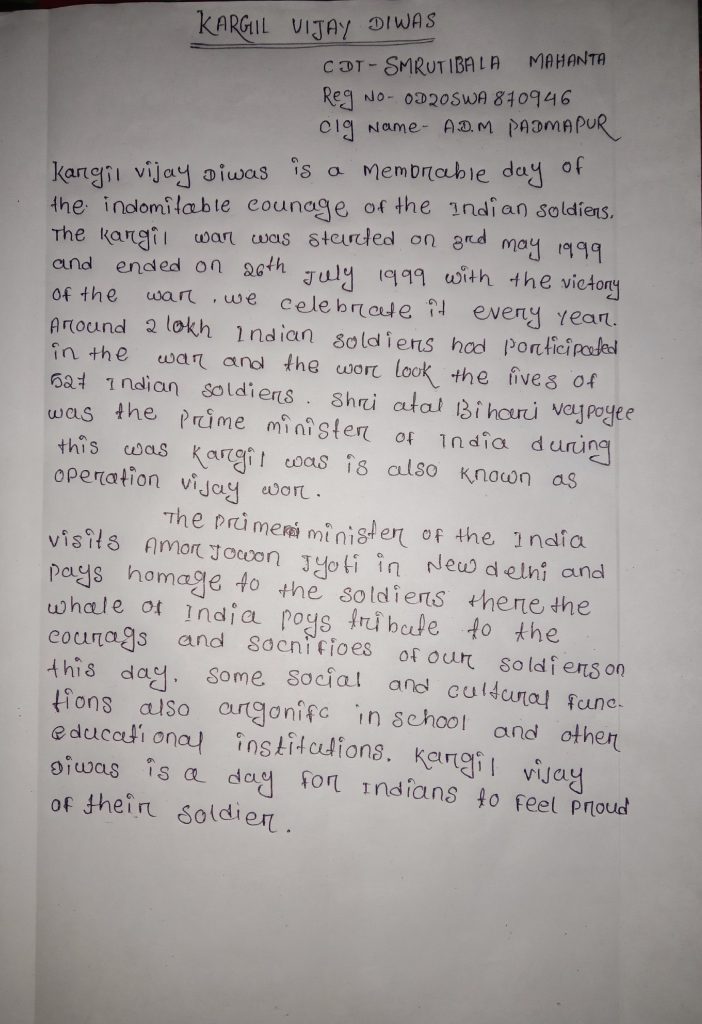 KARGIL VIJAY DIWAS
CDT - SMRUTIBALA MAHANTA
Reg No - OD20SWA870946
Clg Name - A.D.M PADMAPUR
Kargil vijay Diwas is a memorable day of
the indomitable courage of the Indian soldiers.
The Kargil war was started on 3rd may 1999
and ended on 26th July 1999 with the victory
of the war . we celebrate it every year.
Around 2 lokh Indian soldiers had porticipated
in the war and the wor look the lives of
527 Indian soldiers . Shri atal Bihari vajpoyee
was the prime minister of India during
this was Kargil was is also known as
operation vijay wor.
The prime minister of the India
visits Amor Jowon Jyoti in New delhi and
pays homage to the soldiers there the
whale of India poys tribute to the
courags and socrifioes of our soldiers on
this day. Some social and cultural func-
tions also argonifc in school and other
educational institutions. Kargil vijay
Diwas is a day for Indians to feel proud
of their soldier.